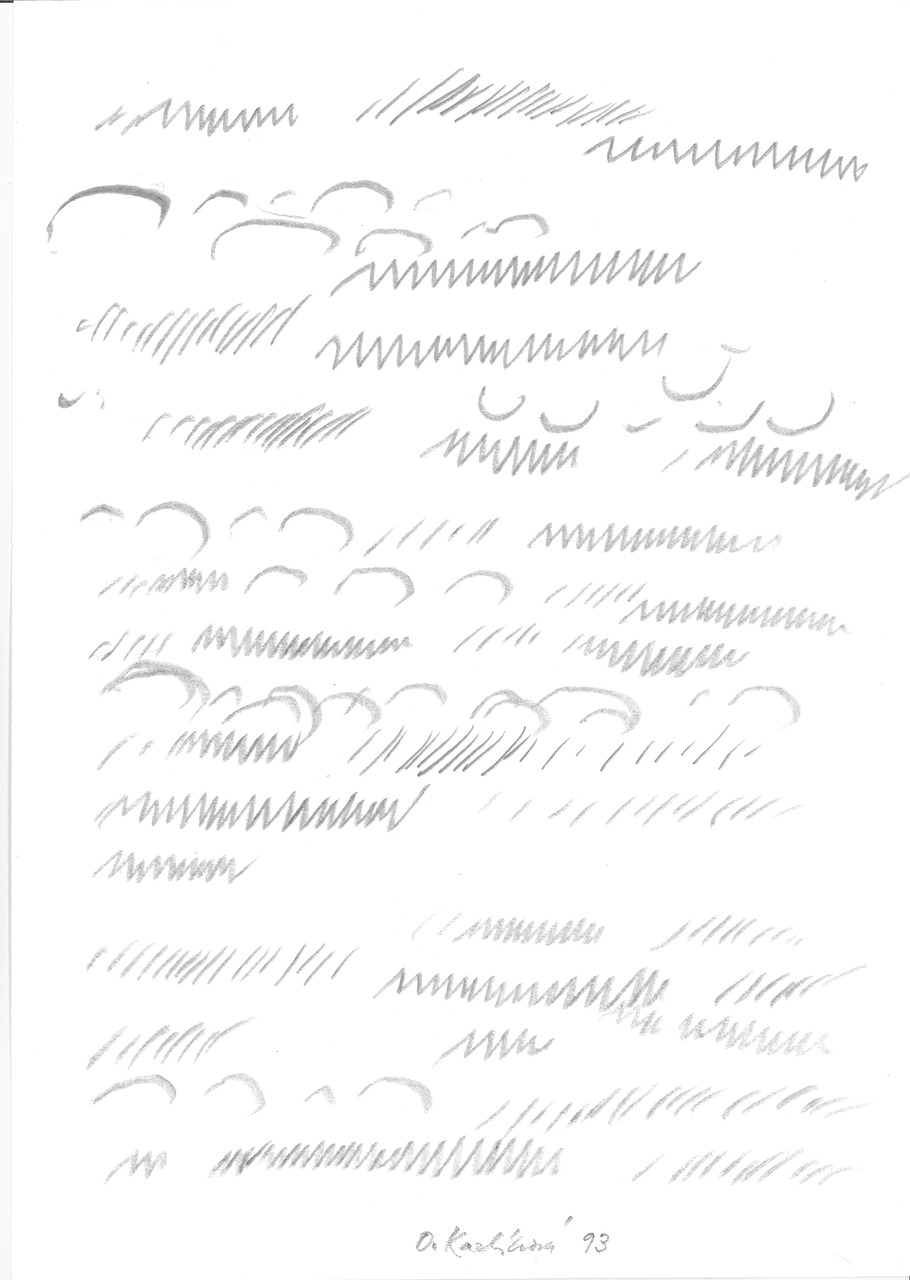 O. Karlíková 93